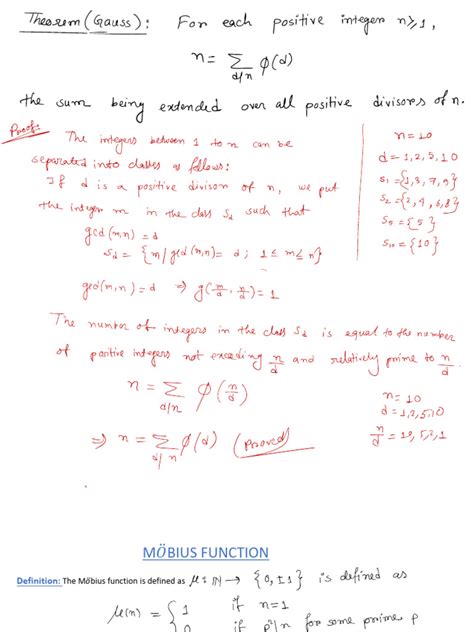 Theorem (Gauss): For each positive integer n≥1,
n = ∑ φ(d)
d/n
the sum being extended over all positive divisors of n.
Proof: The integers between 1 to n can be
separated into classes as follows:
If d is a positive divisor of n, we put
the integer m in the class Sd such that
gcd(m,n) = d
Sd = {m / gcd(m,n) = d ; 1 ≤ m ≤ n}
gcd(m,n) = d ⇒ g(m/d, n/d) = 1
n = 10
d = 1, 2, 5, 10
S1 = {1, 3, 7, 9}
S2 = {2, 4, 6, 8}
S5 = {5}
S10 = {10}
The number of integers in the class Sd is equal to the number
of positive integers not exceeding n/d and relatively prime to n/d
n = ∑ φ(n/d)
d/n
⇒ n = ∑ φ(d) (Proved)
d/n
n = 10
d = 1, 2, 5, 10
n/d = 10, 5, 2, 1
MÖBIUS FUNCTION
Definition: The Möbius function is defined as μ : ℕ → {0, ±1} is defined as
μ(n) = { 1 if n=1
0 if p²|n for some prime p